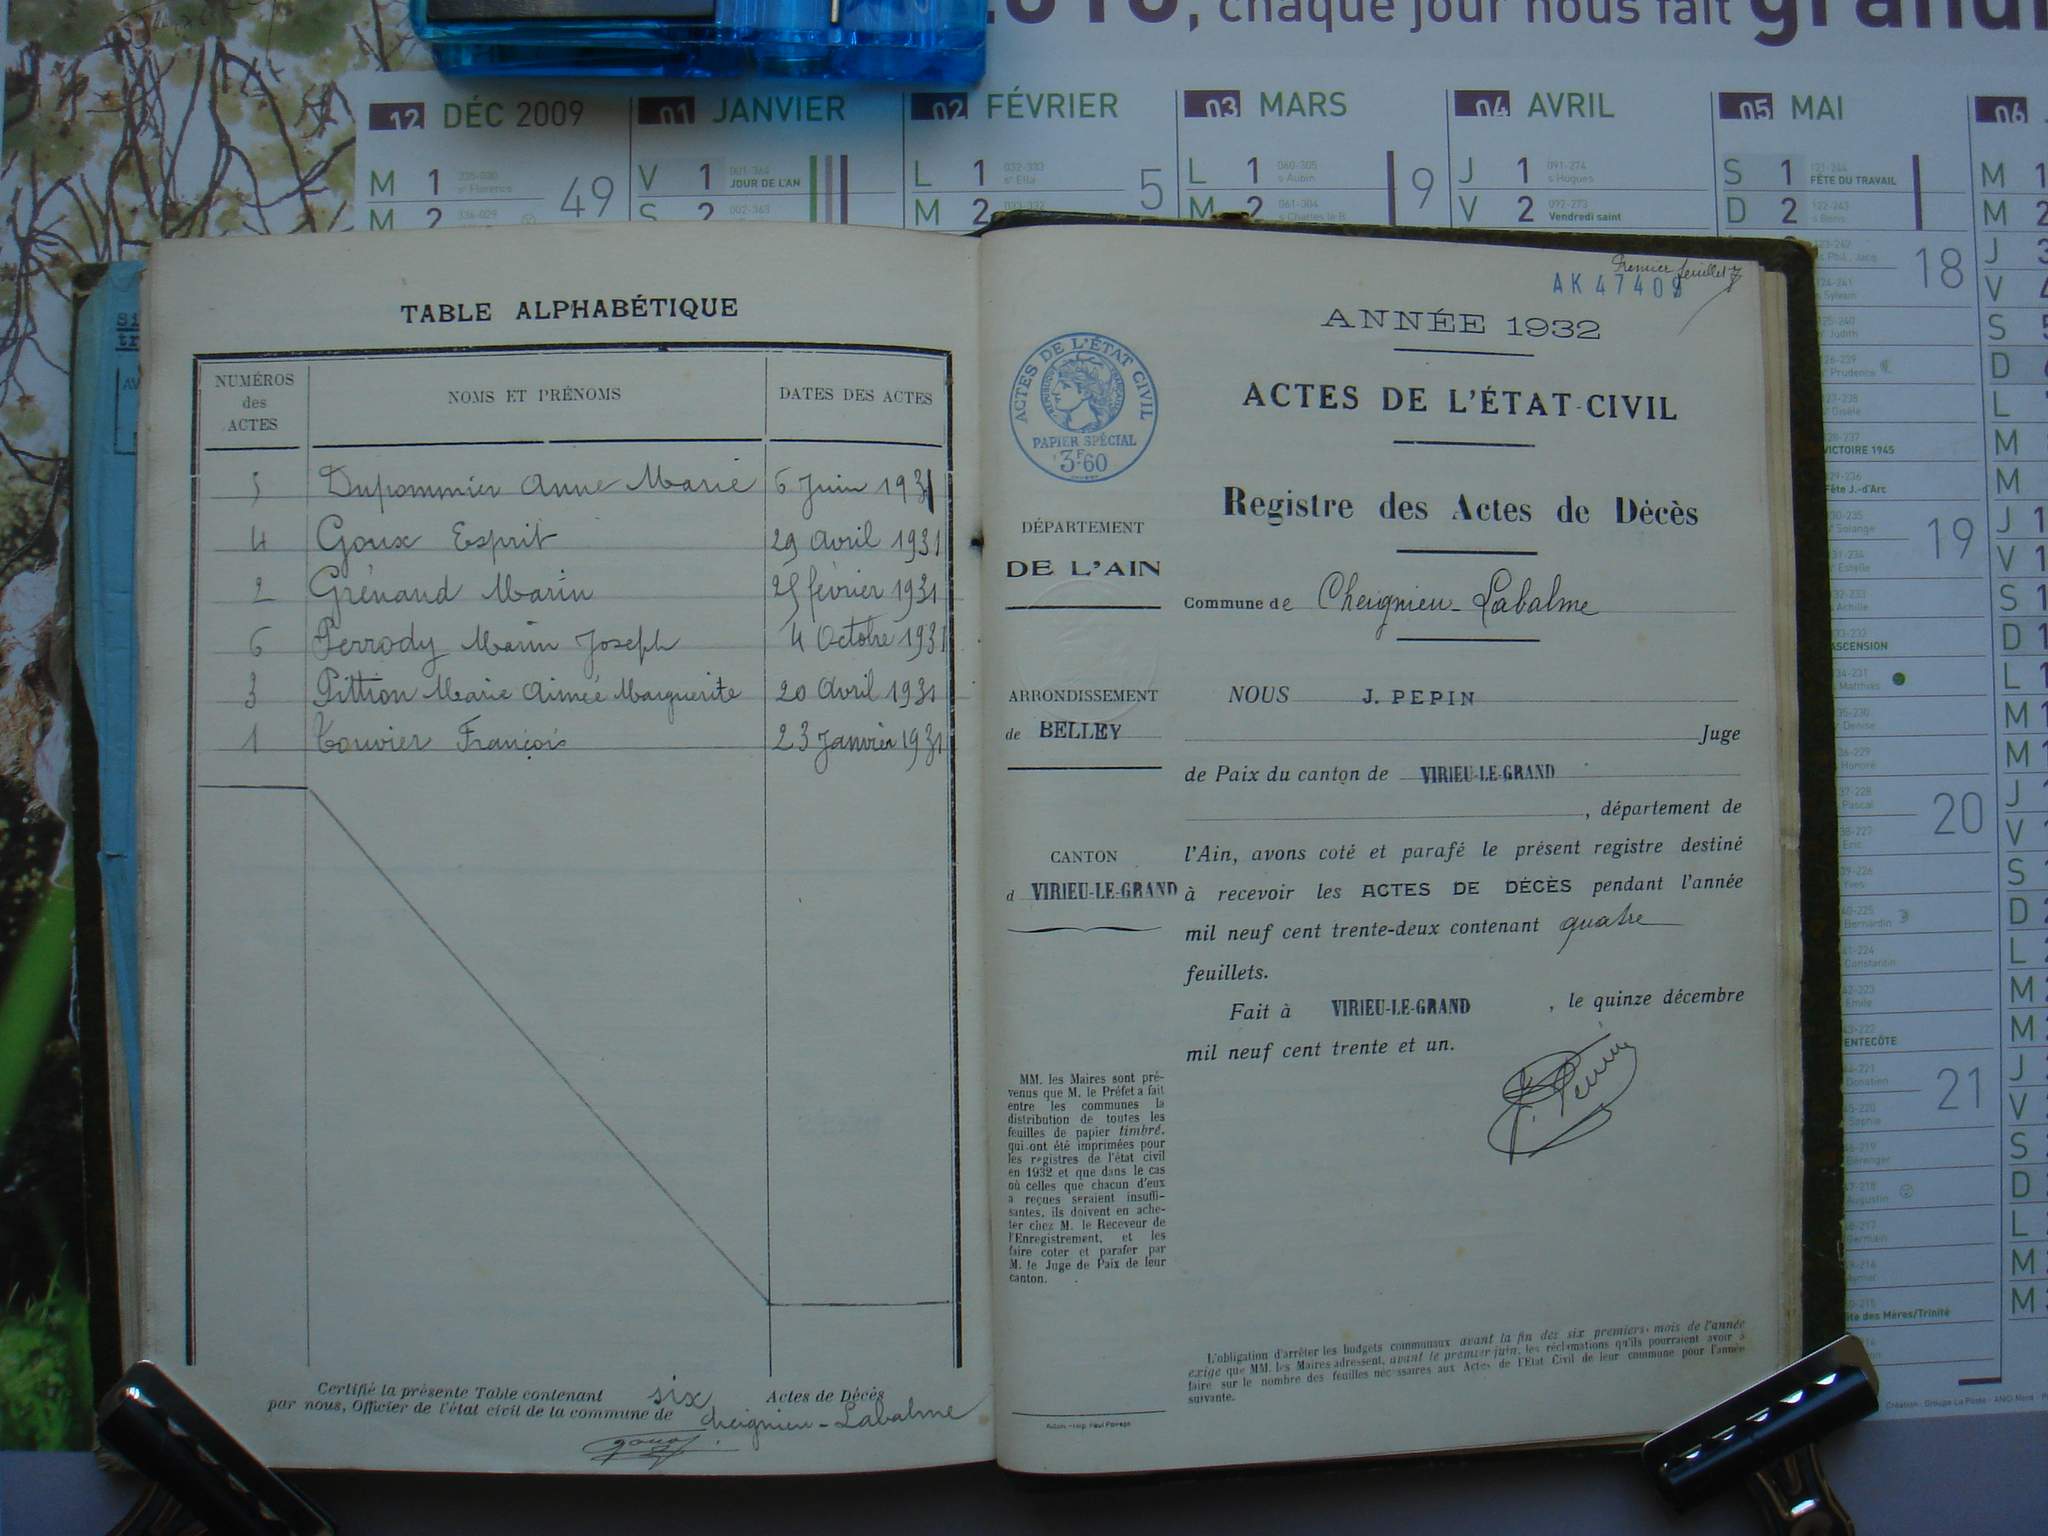 2010, chaque jour nous fait grandi
12 DÉC 2009
01 JANVIER
02 FÉVRIER
03 MARS
04 AVRIL
05 MAI
06
M 1 49
M 2
V 1 JOUR DE L'AN
S 2 002-363
L 1 032-333 5
sᵉ Ella
M 2 033-332
L 1 060-305 9
s Aubin
M 2 061-304
s Charles le B.
J 1 091-274
s Hugues
V 2 092-273
Vendredi saint
S 1 121-244
FÊTE DU TRAVAIL
D 2 122-243
s Boris
18
19
20
21
VICTOIRE 1945
Fête J.-d'Arc
ASCENSION
ENTECÔTE
ête des Mères/Trinité
TABLE ALPHABÉTIQUE
NUMÉROS des ACTES
NOMS ET PRÉNOMS
DATES DES ACTES
5 Dupommier Anne Marie 6 Juin 1931
4 Goux Esprit 29 Avril 1931
2 Grénaud Marin 25 février 1931
6 Perrody Marin Joseph 4 Octobre 1931
3 Pittion Marie Aimée Marguerite 20 Avril 1931
1 Touvier François 23 Janvier 1931
Certifié la présente Table contenant six Actes de Décès
par nous, Officier de l'état civil de la commune de Cheignieu-Labalme
Premier feuillet
AK 47409
ANNÉE 1932
ACTES DE L'ÉTAT CIVIL
RÉPUBLIQUE FRANÇAISE
PAPIER SPÉCIAL
3F.60
ACTES DE L'ÉTAT-CIVIL
Registre des Actes de Décès
DÉPARTEMENT
DE L'AIN
Commune de Cheignieu-Labalme
ARRONDISSEMENT
de BELLEY
NOUS J. PEPIN
Juge
de Paix du canton de VIRIEU-LE-GRAND
, département de
l'Ain, avons coté et parafé le présent registre destiné
à recevoir les ACTES DE DÉCÈS pendant l'année
mil neuf cent trente-deux contenant quatre
feuillets.
Fait à VIRIEU-LE-GRAND , le quinze décembre
mil neuf cent trente et un.
J. Pepin
CANTON
d VIRIEU-LE-GRAND
MM. les Maires sont pré-
venus que M. le Préfet a fait
entre les communes la
distribution de toutes les
feuilles de papier timbré,
qui ont été imprimées pour
les registres de l'état civil
en 1932 et que dans le cas
où celles que chacun d'eux
a reçues seraient insuffi-
santes, ils doivent en ache-
ter chez M. le Receveur de
l'Enregistrement, et les
faire coter et parafer par
M. le Juge de Paix de leur
canton.
L'obligation d'arrêter les budgets communaux avant la fin des six premiers mois de l'année
exige que MM. les Maires adressent, avant le premier juin, les réclamations qu'ils pourraient avoir à
faire sur le nombre des feuilles nécessaires aux Actes de l'Etat Civil de leur commune pour l'année
suivante.